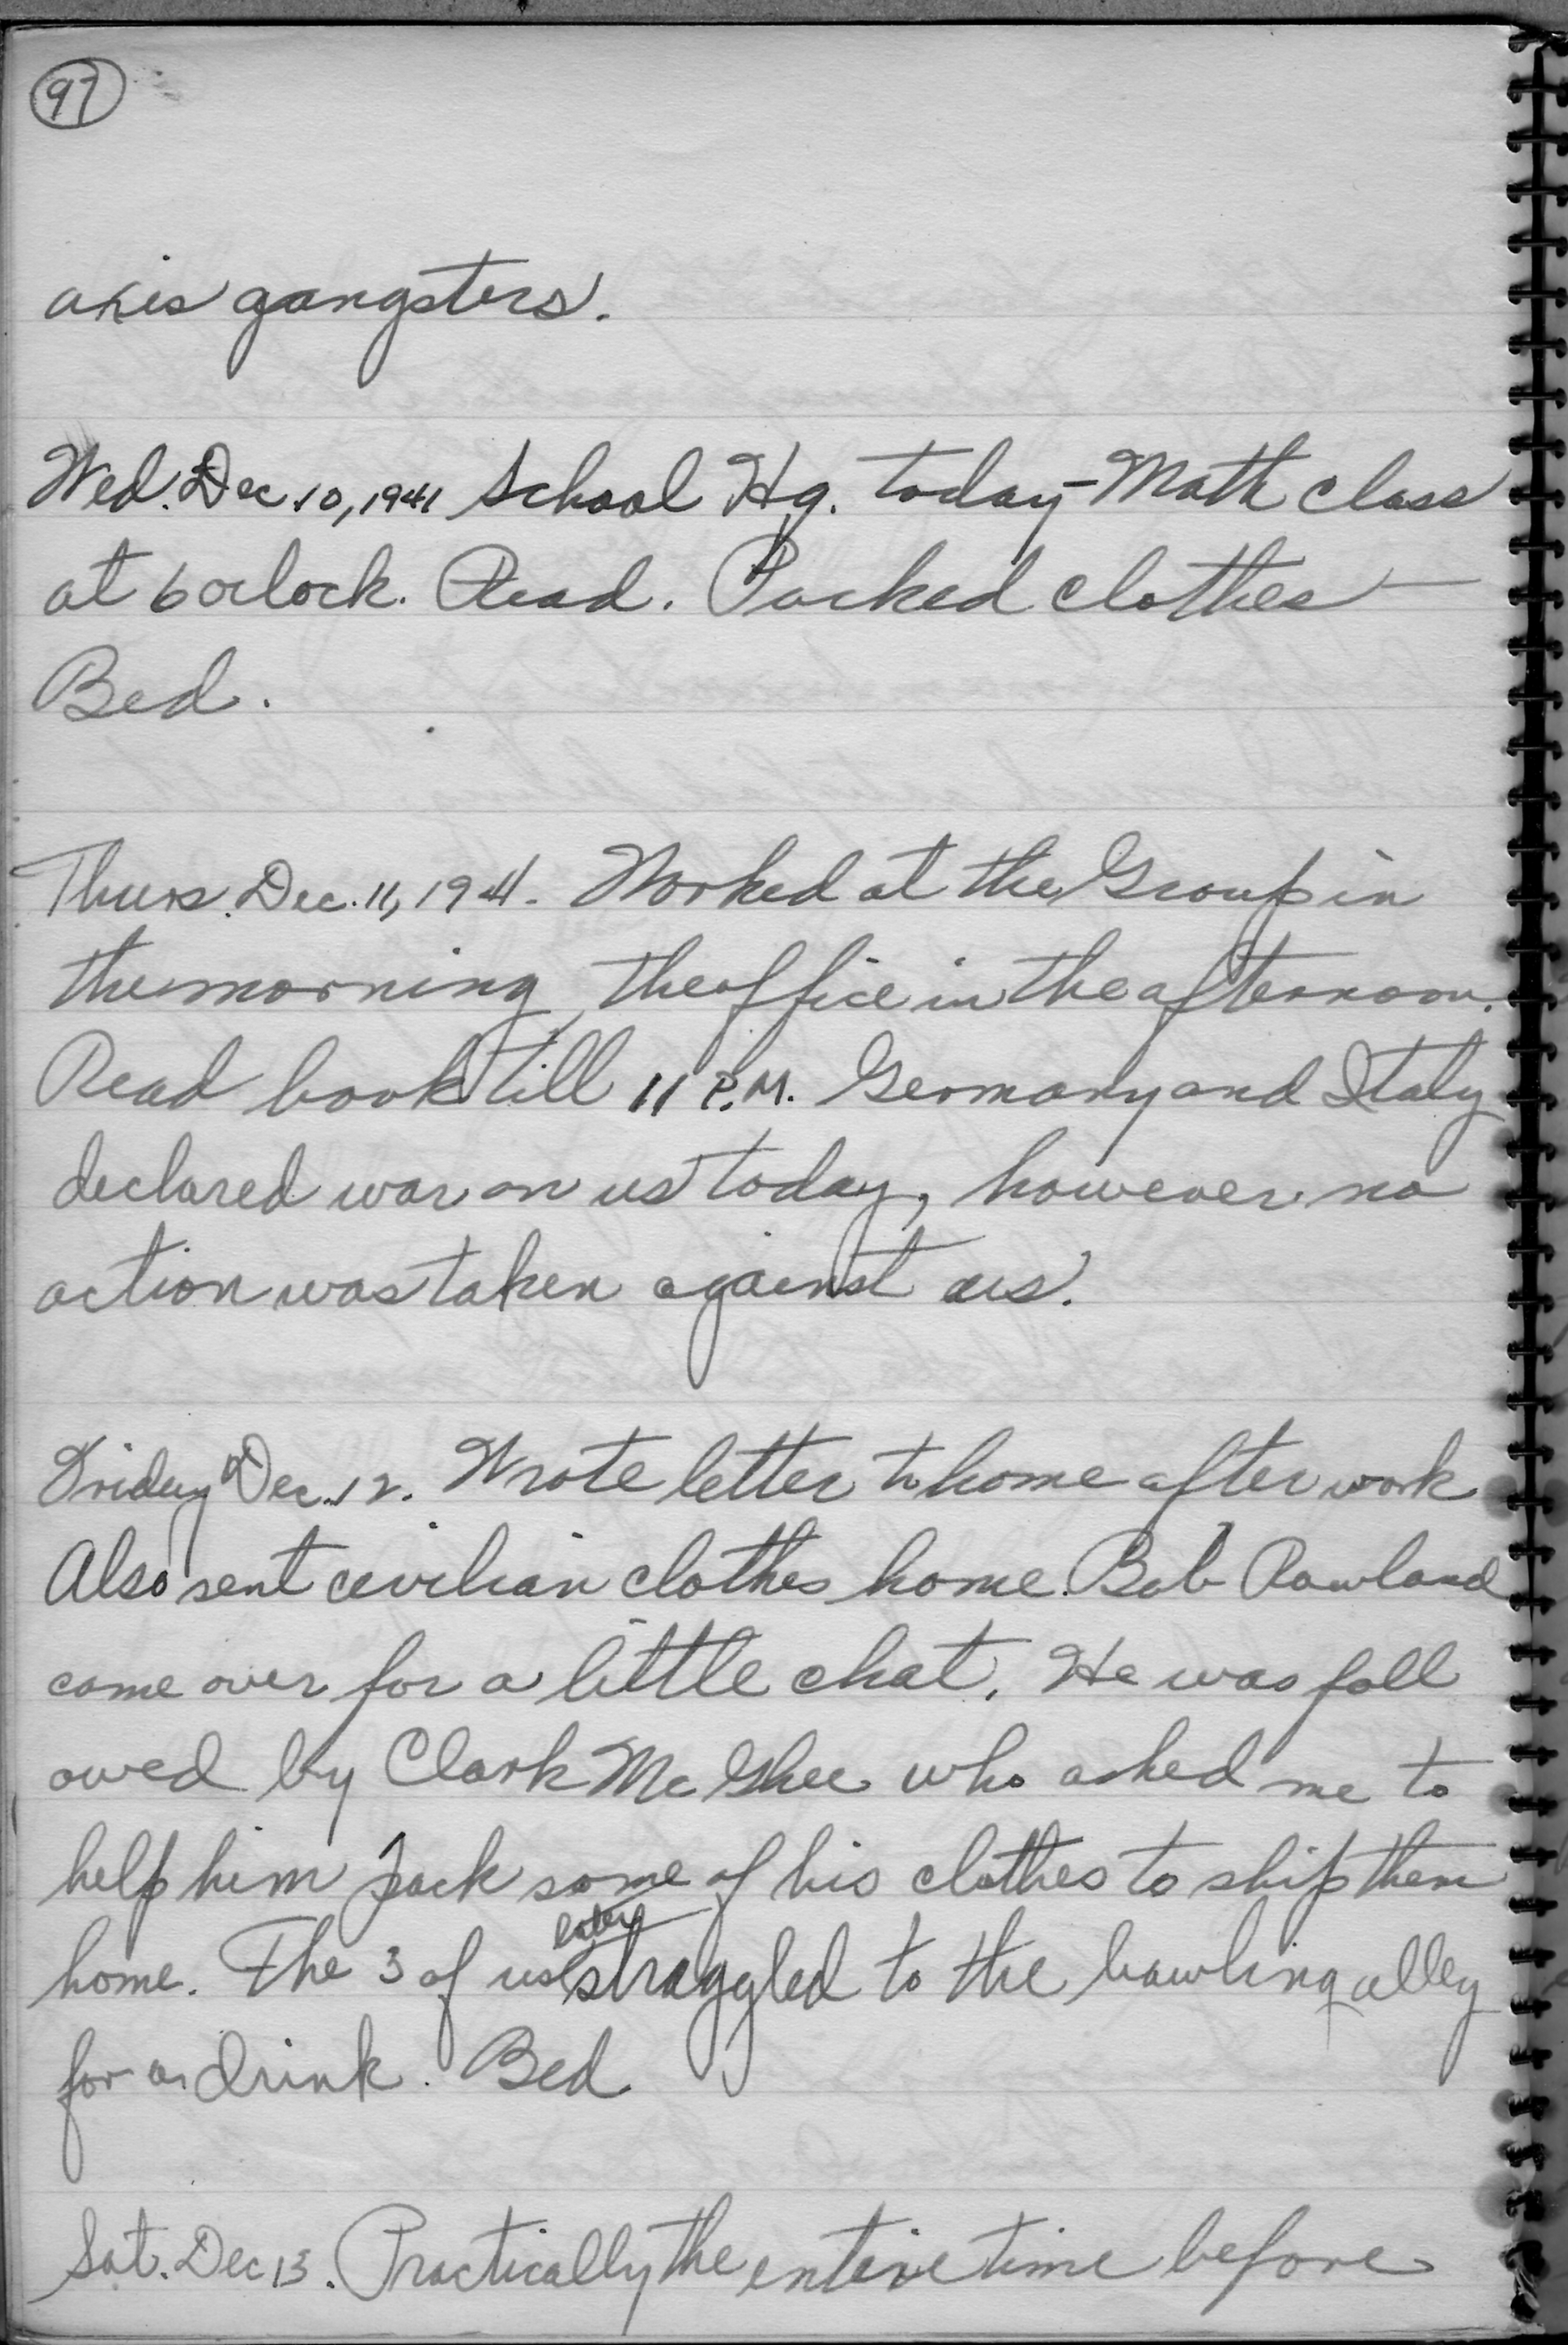 97
axis gangsters.
Wed. Dec. 10, 1941 School Hq. today - Math class
at 6 oclock. Read. Packed clothes -
Bed.
Thurs. Dec. 11, 1941. Worked at the Group in
the morning, the office in the afternoon.
Read book till 11 P.M. Germany and Italy
declared war on us today, however no
action was taken against us.
Friday Dec. 12. Wrote letter to home after work
Also sent civilian clothes home. Bob Rowland
came over for a little chat. He was foll
owed by Clark McGhee who asked me to
help him pack some of his clothes to ship them
home. The 3 of us later straggled to the bowling alley
for a drink. Bed
Sat. Dec 13. Practically the entire time before